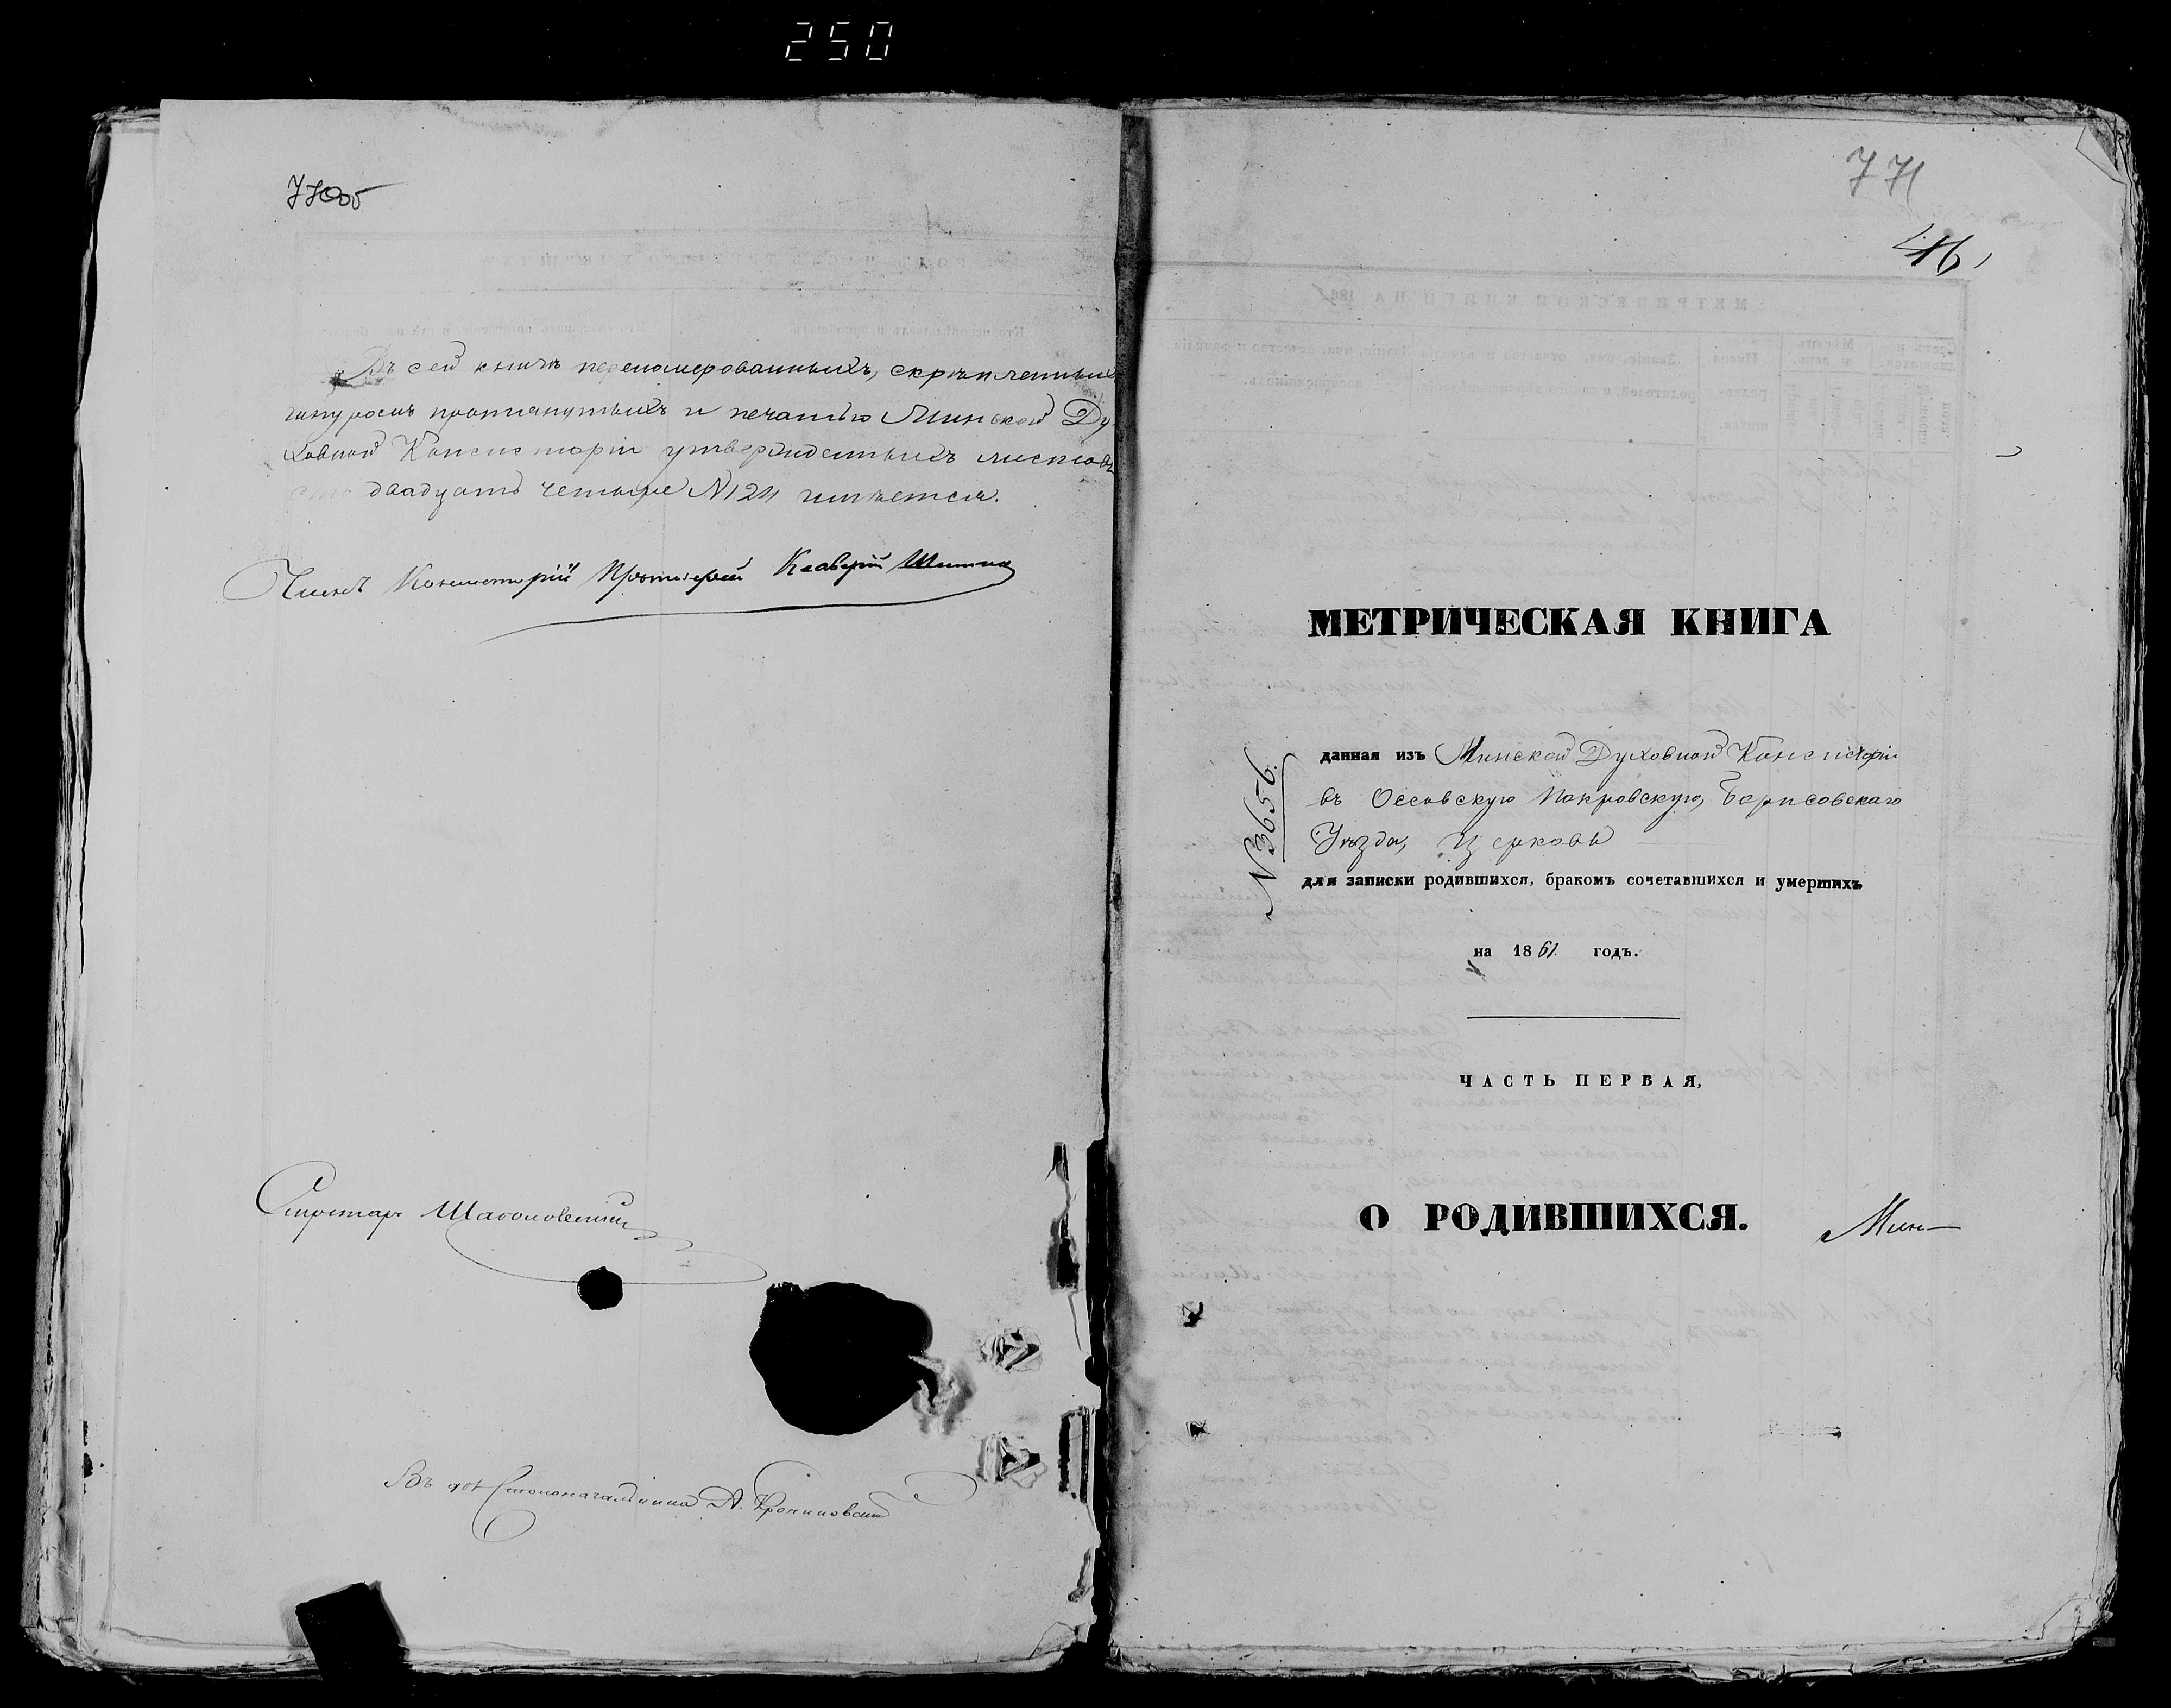 250
770об
Въ сей книгѣ перенумерованныхъ, скрѣпленныхъ
шнуромъ протянутыхъ и печатью Минской Ду
ховной Консисторіи утвержденныхъ листовъ
сто двадцать четыре №124 имѣется.
Членъ Консисторіи Протоіерей
Секретарь
Въ дол Столоначальника А.
771
46
МЕТРИЧЕСКАЯ КНИГА
данная изъ Минской Духовной Консисторіи
въ Оссовскую Покровскую, Борисовскаго
Уѣзда, Церковь
№3656
для записки родившихся, бракомъ сочетавшихся и умершихъ
на 1861 годъ.
ЧАСТЬ ПЕРВАЯ,
О РОДИВШИХСЯ.
Мин-